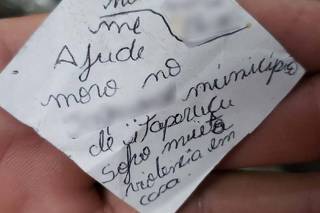 me
Ajude
moro no
município
de itaporuçu
sofro muito
violencia em
casa